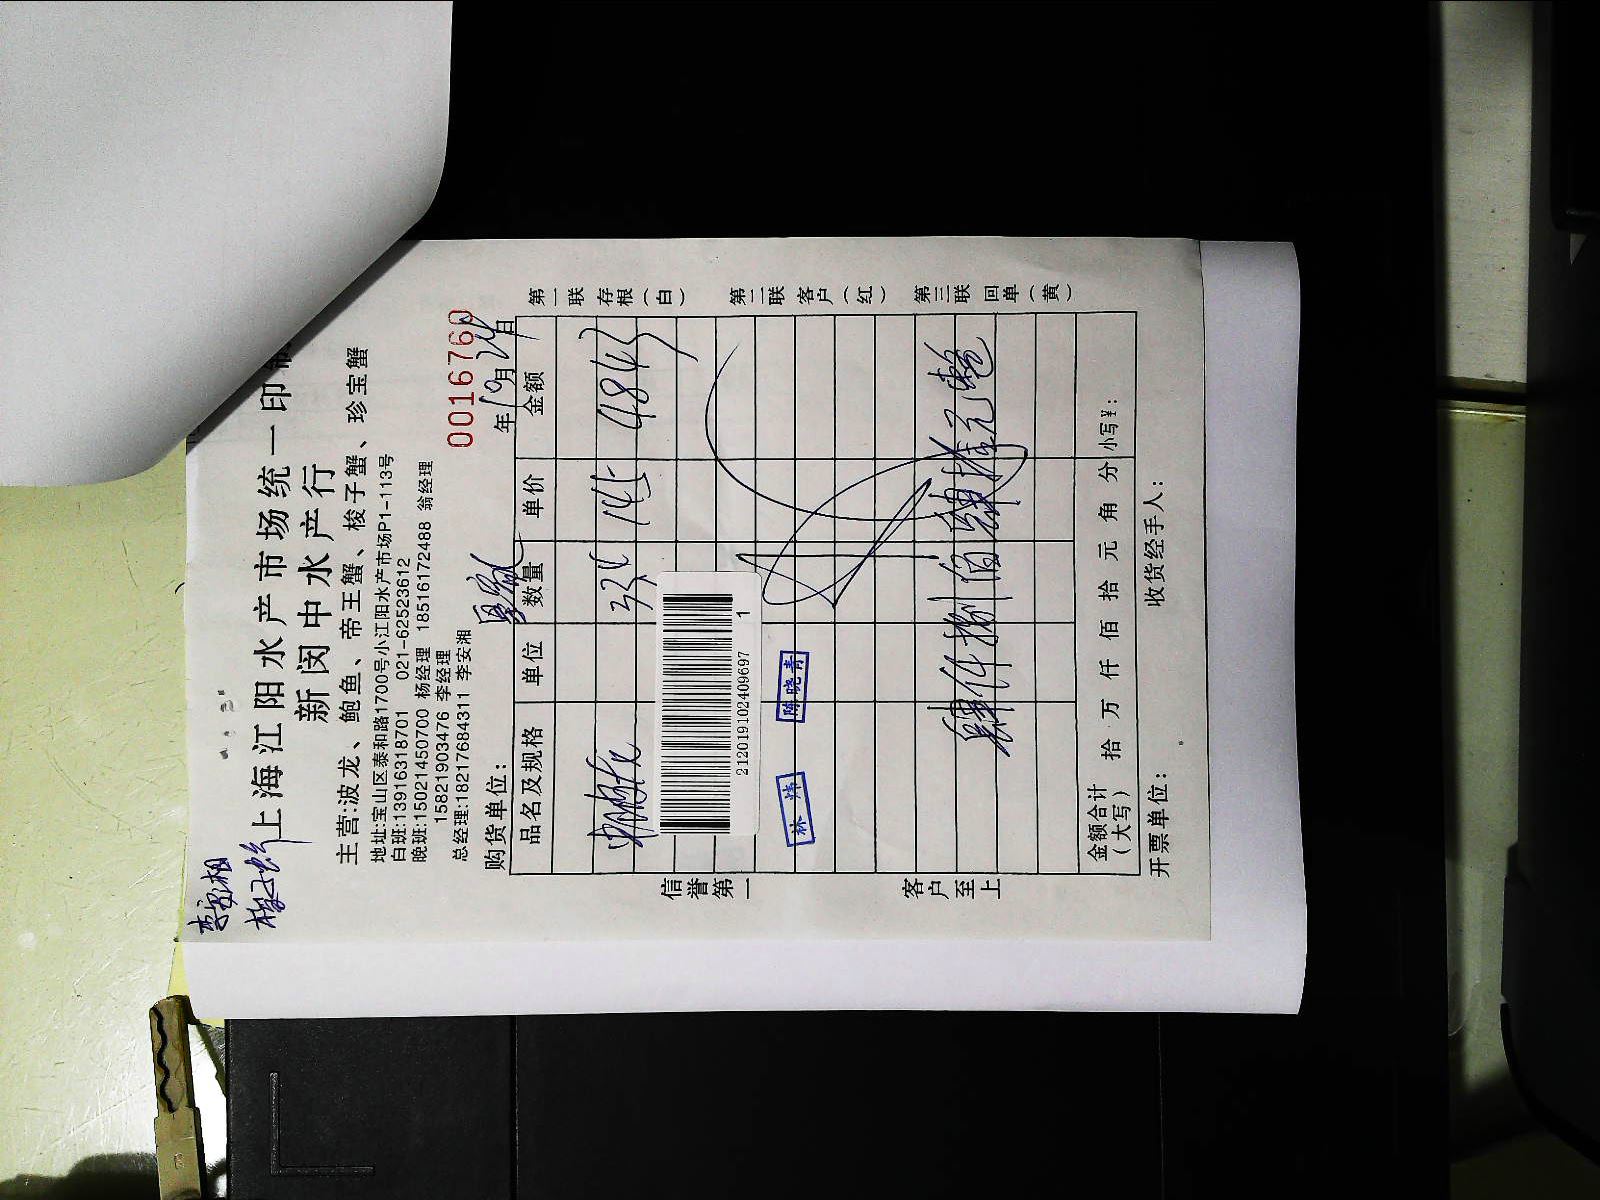 上海江阳水产市场统一印制
新闵中水产行
主营:波龙、鲍鱼、帝王蟹、梭子蟹、珍宝蟹
地址:宝山区泰和路1700号小江阳水产市场P1-113号
白班:13916318701 021-62523612
晚班:15021450700 杨经理 18516172488 翁经理
15821903476 李经理
总经理:18217684311 李安湘
0016760
购货单位:
年10月24日
品名及规格 单位 数量 单价 金额
334 145 4843
212019102409697 1
林炜 陈晓青
肆仟捌佰肆拾叁元整
金额合计(大写) 拾 万 仟 佰 拾 元 角 分 小写¥:
开票单位: 收货经手人:
信誉第一
客户至上
第一联 存根(白)
第二联 客户(红)
第三联 回单(黄)